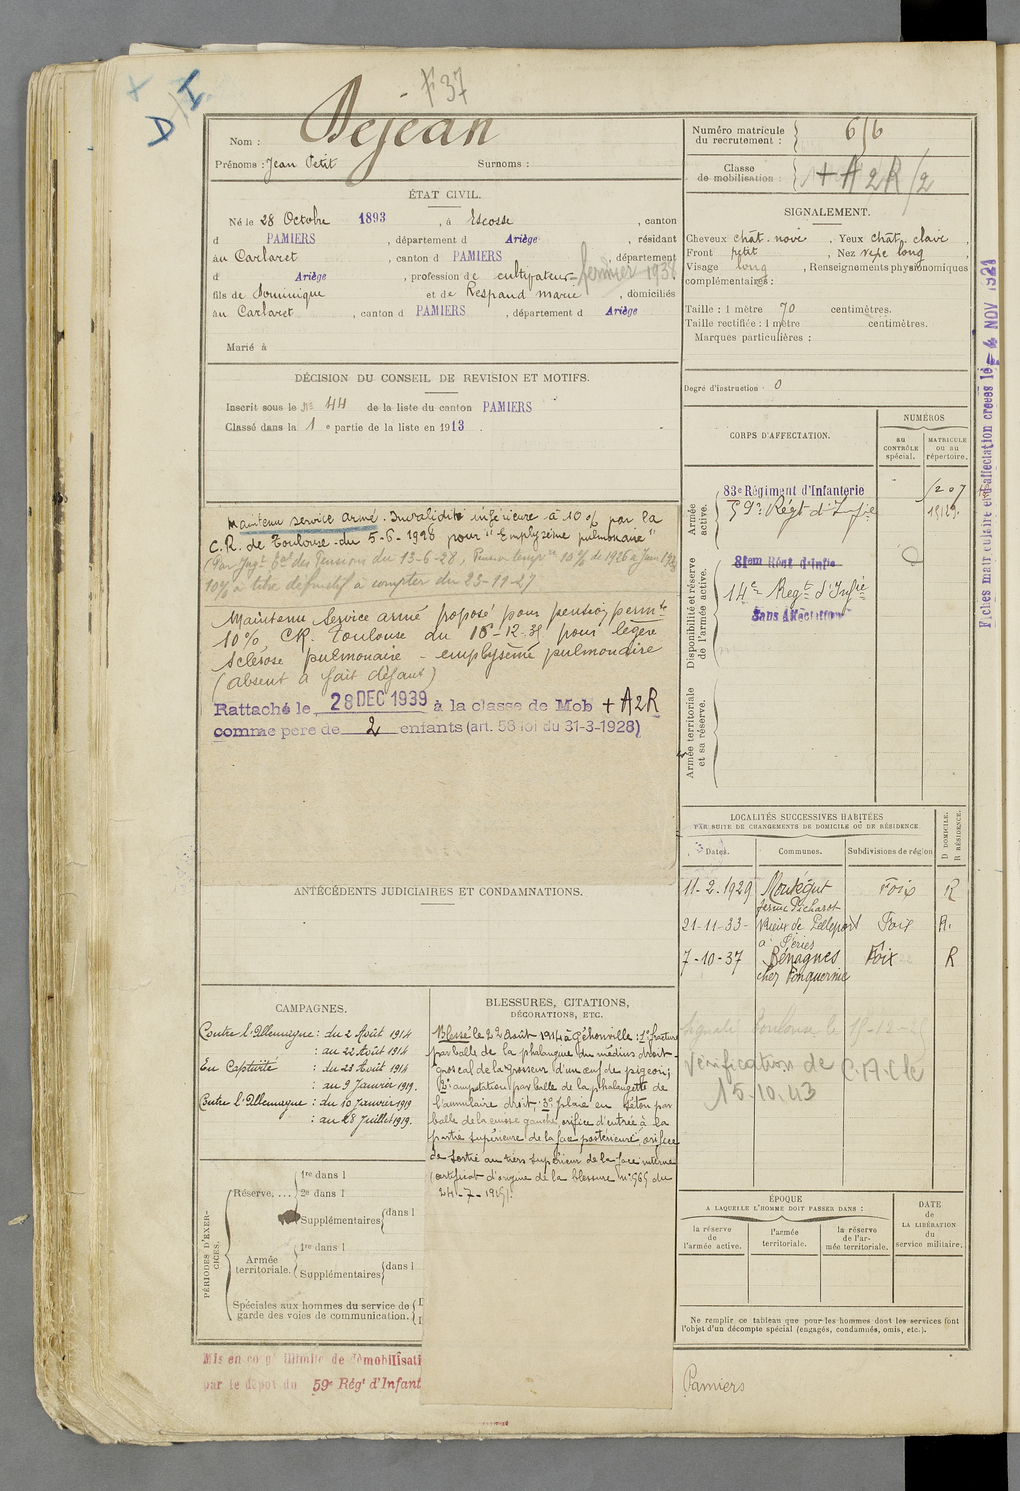 F 37
D I
Nom : Dejean
Prénoms : Jean Petit Surnoms :
Numéro matricule
du recrutement :
616
Classe
de mobilisation :
+ A 2R /2
ÉTAT CIVIL.
Né le 28 Octobre 1893, à Escosse, canton
d PAMIERS, département d Ariège, résidant
au Carlaret, canton d PAMIERS, département
d Ariège, profession de cultivateur fermier
fils de Dominique et de Respaud Marie, domiciliés
au Carlaret, canton d PAMIERS, département d Ariège
Marié à
SIGNALEMENT.
Cheveux chât. noir, Yeux chât. clair,
Front petit, Nez long,
Visage long, Renseignements physionomiques
complémentaires :
Taille : 1 mètre 70 centimètres.
Taille rectifiée : 1 mètre centimètres.
Marques particulières :
Degré d'instruction : 0
DÉCISION DU CONSEIL DE REVISION ET MOTIFS.
Inscrit sous le N° 44 de la liste du canton PAMIERS
Classé dans la 1e partie de la liste en 1913.
Maintenu service armé. Invalidité inférieure à 10% par la
C.R. de Toulouse du 5-6-1926 pour "Emphysème pulmonaire"
(Par Jugt Bal des Pensions du 13-6-28, Pension temp 10% de 1926 à
10% à titre définitif à compter du 23-11-27
Maintenu Service armé proposé pour pension permte
10% CR. Toulouse du 16-12-31 pour légère
sclérose pulmonaire - emphysème pulmonaire
(absent a fait défaut)
Rattaché le 28 DEC 1939 à la classe de Mob + A2R
comme père de 2 enfants (art. 58 loi du 31-3-1928)
CORPS D'AFFECTATION.
NUMÉROS
au
CONTRÔLE
spécial.
MATRICULE
ou au
répertoire.
Armée
active.
83e Régiment d'Infanterie
59e Régt d'Infie
1207
Disponibilité et réserve
de l'armée active.
81em Régt d'Infie
14e Regt d'Infie
Sans Affectation
Armée territoriale
et sa réserve.
Fiches matriculaire et d'affectation créées le 4 NOV 1921
LOCALITÉS SUCCESSIVES HABITÉES
PAR SUITE DE CHANGEMENTS DE DOMICILE OU DE RÉSIDENCE
Dates. Communes. Subdivisions de région
D DOMICILE.
R RÉSIDENCE.
11-2-1929 Montégut Foix R
ferme Picharot
21-11-33- Rieux de Pelleport Foix R.
à Péries
7-10-37 Bénagues Foix R
chez Fonquernie
Signalé Toulouse le
Vérification de C.A.
15.10.43
ANTÉCÉDENTS JUDICIAIRES ET CONDAMNATIONS.
CAMPAGNES.
Contre l'Allemagne : du 2 Août 1914
: au 22 Août 1914
En Captivité : du 23 Août 1914
: au 9 Janvier 1919.
Contre l'Allemagne : du 10 Janvier 1919
: au 28 Juillet 1919.
BLESSURES, CITATIONS,
DÉCORATIONS, ETC.
Blessé le 22 Août 1914 à Jéhonville : 1° fracture
par balle de la phalangue du médius droit -
gros cal de la grosseur d'un œuf de pigeon ;
2° amputation par balle de la phalangette de
l'annulaire droit ; 3° plaie en séton par
balle de la cuisse gauche, orifice d'entrée à la
partie supérieure de la face postérieure, orifice
de sortie au tiers supérieur de la face interne
(certificat d'origine de la blessure n° 565 du
24-7-1919).
PÉRIODES D'EXERCICES.
Réserve, ...
1re dans l
2e dans l
Supplémentaires dans l
Armée
territoriale.
1re dans l
Supplémentaires dans l
Spéciales aux hommes du service de
garde des voies de communication.
ÉPOQUE
A LAQUELLE L'HOMME DOIT PASSER DANS :
la réserve
de
l'armée active.
l'armée
territoriale.
la réserve
de l'ar-
mée territoriale.
DATE
de
LA LIBÉRATION
du
service militaire.
Ne remplir ce tableau que pour les hommes dont les services font
l'objet d'un décompte spécial (engagés, condamnés, omis, etc.).
Mis en congé illimité de démobilisati
par le dépôt du 59e Régt d'Infant
Pamiers